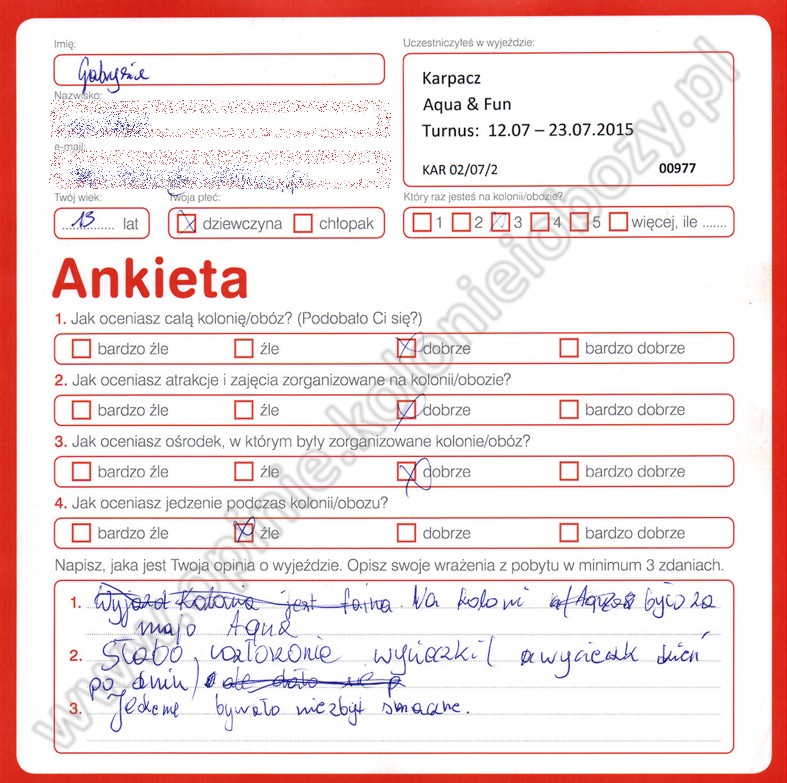 Imię:
Uczestniczyłeś w wyjeździe:
Gabrysia
Karpacz
Aqua & Fun
Turnus: 12.07 – 23.07.2015
KAR 02/07/2 00977
Nazwisko:
e-mail:
Twój wiek:
Twoja płeć:
Który raz jesteś na kolonii/obozie?
13 lat
dziewczyna chłopak
1 2 3 4 5 więcej, ile .......
Ankieta
1. Jak oceniasz całą kolonię/obóz? (Podobało Ci się?)
bardzo źle źle dobrze bardzo dobrze
2. Jak oceniasz atrakcje i zajęcia zorganizowane na kolonii/obozie?
bardzo źle źle dobrze bardzo dobrze
3. Jak oceniasz ośrodek, w którym były zorganizowane kolonie/obóz?
bardzo źle źle dobrze bardzo dobrze
4. Jak oceniasz jedzenie podczas kolonii/obozu?
bardzo źle źle dobrze bardzo dobrze
Napisz, jaka jest Twoja opinia o wyjeździe. Opisz swoje wrażenia z pobytu w minimum 3 zdaniach.
1. Wyjazd Kolonia jest fajna. Na koloni było za
mało Aqua
2. Słabo rozłożone wycieczki ( wycieczk dzień
po dniu)
3. bywało niezbyt smaczne.
www.opinie.kolonieiobozy.pl